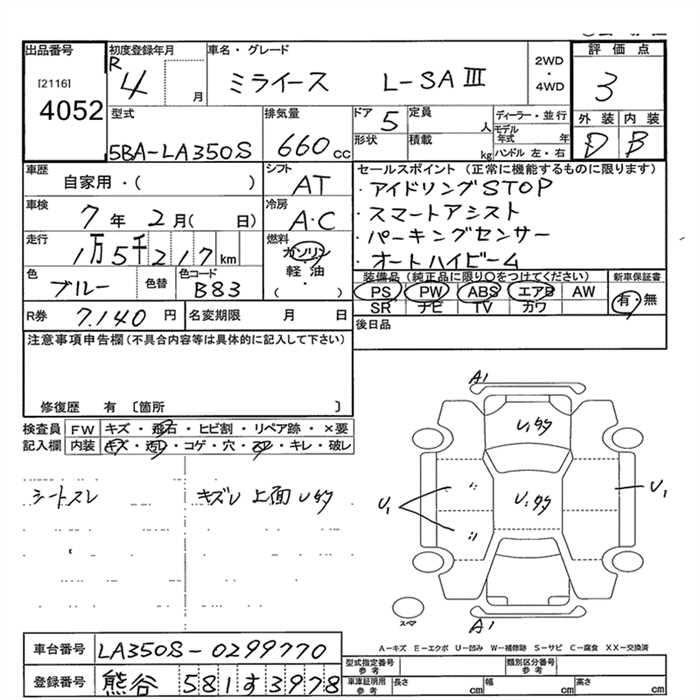 出品番号 初度登録年月 車名・グレード 2WD ・ 4WD 評価点
[2116] R 4 月 ミライース L-SAⅢ 3
4052 型式 排気量 ドア 5 定員 人 ディーラー・並行 外装 内装
5BA-LA350S 660 cc 形状 積載 kg モデル年式 年 ハンドル 左・右 D B
車歴 シフト セールスポイント (正常に機能するものに限ります)
自家用・( ) AT ・アイドリングSTOP
車検 7年 2月( 日) 冷房 A・C ・スマートアシスト
走行 燃料 ・パーキングセンサー
1万5千217km ガソリン 軽油 ・( ) ・オートハイビーム
色 ブルー 色替 色コード B83 装備品(純正品に限り○をつけてください) 新車保証書
PS PW ABS エアB AW 有・無
SR ナビ TV カワ
R券 7.140円 名変期限 月 日 後日品
注意事項申告欄(不具合内容等は具体的に記入して下さい)
修復歴 有 〔箇所 〕
検査員 FW キズ・飛石・ヒビ割・リペア跡・×要
記入欄 内装 キズ・汚レ・コゲ・穴・スレ・キレ・破レ
シートスレ キズレ 上面U多
A1
U1多
U1 U1多 U1
スペア
A1
A-キズ E-エクボ U-凹み W-補修跡 S-サビ C-腐食 XX-交換済
車台番号 LA350S-0299770 型式指定番号 参考 類別区分番号 参考
登録番号 熊谷 581す3978 車庫証明用 参考 長さ cm 幅 cm 高さ cm